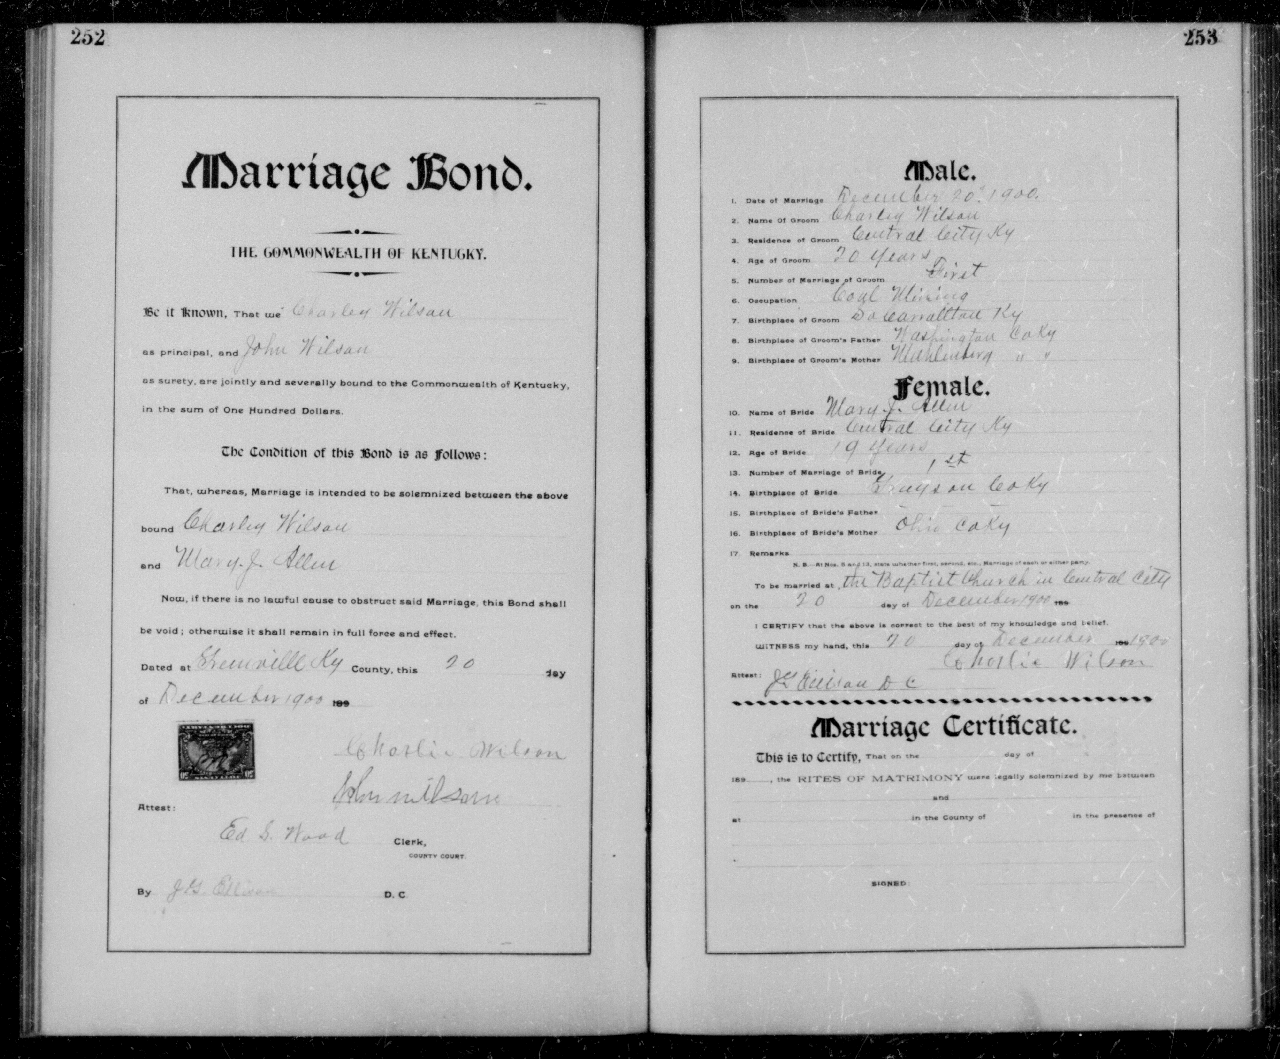 252
Marriage Bond.
THE COMMONWEALTH OF KENTUCKY.
Be it Known, That we Charley Wilson
as principal, and John Wilson
as surety, are jointly and severally bound to the Commonwealth of Kentucky,
in the sum of One Hundred Dollars.
The Condition of this Bond is as Follows:
That, whereas, Marriage is intended to be solemnized between the above
bound Charley Wilson
and Mary. J. Allen
Now, if there is no lawful cause to obstruct said Marriage, this Bond shall
be void; otherwise it shall remain in full force and effect.
Dated at Greenville Ky County, this 20 day
of December 1900 189
Charlie Wilson
John Wilson
Attest:
Ed S. Wood Clerk,
COUNTY COURT.
By J G Ellison D. C.
253
Male.
1. Date of Marriage December 20" 1900.
2. Name Of Groom Charley Wilson
3. Residence of Groom Central City Ky
4. Age of Groom 20 Years
5. Number of Marriage of Groom First
6. Occupation Coal Mining
7. Birthplace of Groom So Carrallton Ky
8. Birthplace of Groom's Father Washington Co Ky
9. Birthplace of Groom's Mother Muhlenburg " "
Female.
10. Name of Bride Mary. J. Allen
11. Residence of Bride Central City Ky
12. Age of Bride 19 Years
13. Number of Marriage of Bride 1st
14. Birthplace of Bride Grayson Co Ky
15. Birthplace of Bride's Father
16. Birthplace of Bride's Mother Ohio Co Ky
17. Remarks
N. B.—At Nos. 5 and 13, state whether first, second, etc., Marriage of each or either party.
To be married at the Baptist Church in Central City
on the 20 day of December 1900 189
I CERTIFY that the above is correct to the best of my knowledge and belief.
WITNESS my hand, this 20 day of December 189 1900
Charlie Wilson
Attest: J G Ellison D C
Marriage Certificate.
This is to Certify, That on the day of
189 , the RITES OF MATRIMONY were legally solemnized by me between
and
at in the County of in the presence of
SIGNED: